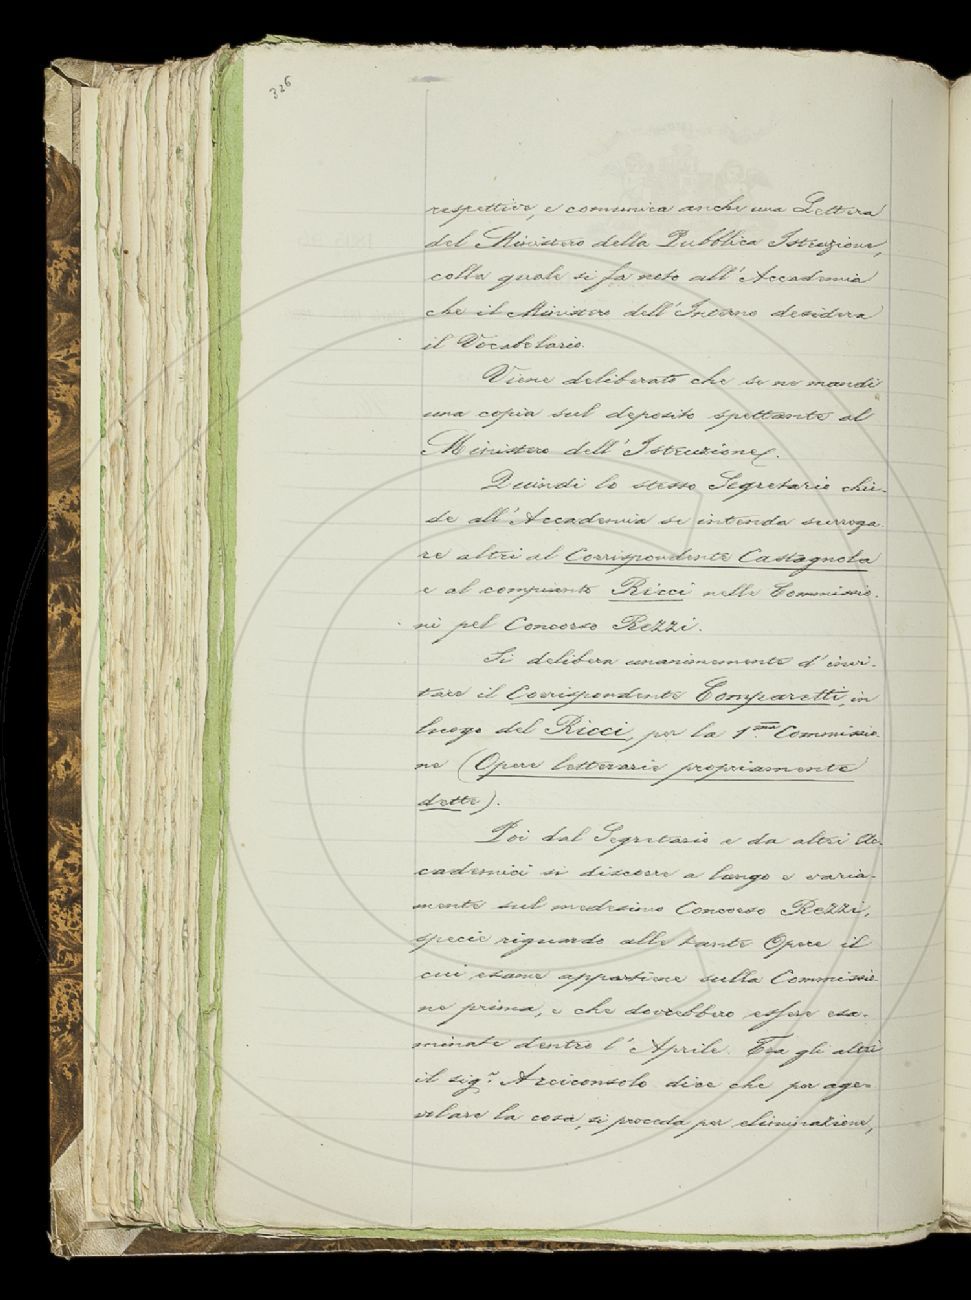 326
respettive, e comunica anche una Lettera
del Ministero della Pubblica Istruzione,
colla quale si fa noto all'Accademia
che il Ministero dell'Interno desidera
il Vocabolario.
Viene deliberato che se ne mandi
una copia sul deposito spettante al
Ministero dell'Istruzione.
Quindi lo stesso Segretario chie-
de all'Accademia se intenda surroga-
re altri al Corrispondente Castagnola
e al compianto Ricci nelle Commissio-
ni pel Concorso Rezzi.
Si delibera unanimemente d'invi-
tare il Corrispondente Comparetti, in
luogo del Ricci, per la 1ma Commissio-
ne (Opere letterarie propriamente
dette).
Poi dal Segretario e da altri Ac-
cademici si discorre a lungo e varia-
mente sul medesimo Concorso Rezzi,
specie riguardo alle tante Opere il
cui esame appartiene sulla Commissio-
ne prima, e che dovrebbero essere esa-
minate dentro l'Aprile. Tra gli altri
il sigr. Arciconsolo dice che per age-
volare la cosa, si proceda per eliminazione,